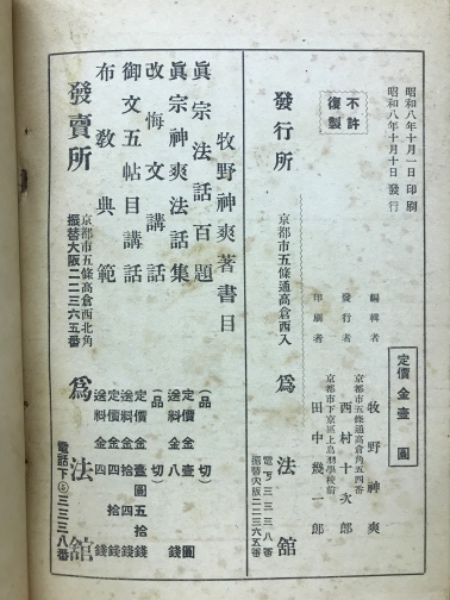 昭和八年十月一日印刷
昭和八年十月十日發行
不許
復製
定價金壹圓
編輯者
牧野神爽
京都市五條通高倉角五四番
發行者
西村十次郎
京都市下京區上鳥羽學校前
印刷者
田中幾一郎
發行所
京都市五條通高倉西入
爲法舘
電下三三三八番
振替大阪二二三六五番
牧野神爽著書目
眞宗法話百題
(品切)
眞宗神爽法話集
定價金壹圓
送料金八錢
改悔文講話
(品切)
御文五帖目講話
定價金壹圓五拾錢
送料金拾四錢
布教典範
定價金四拾錢
送料金四錢
發賣所
京都市五條高倉西北角
振替大阪二二三六五番
爲法舘
電話下三三三八番